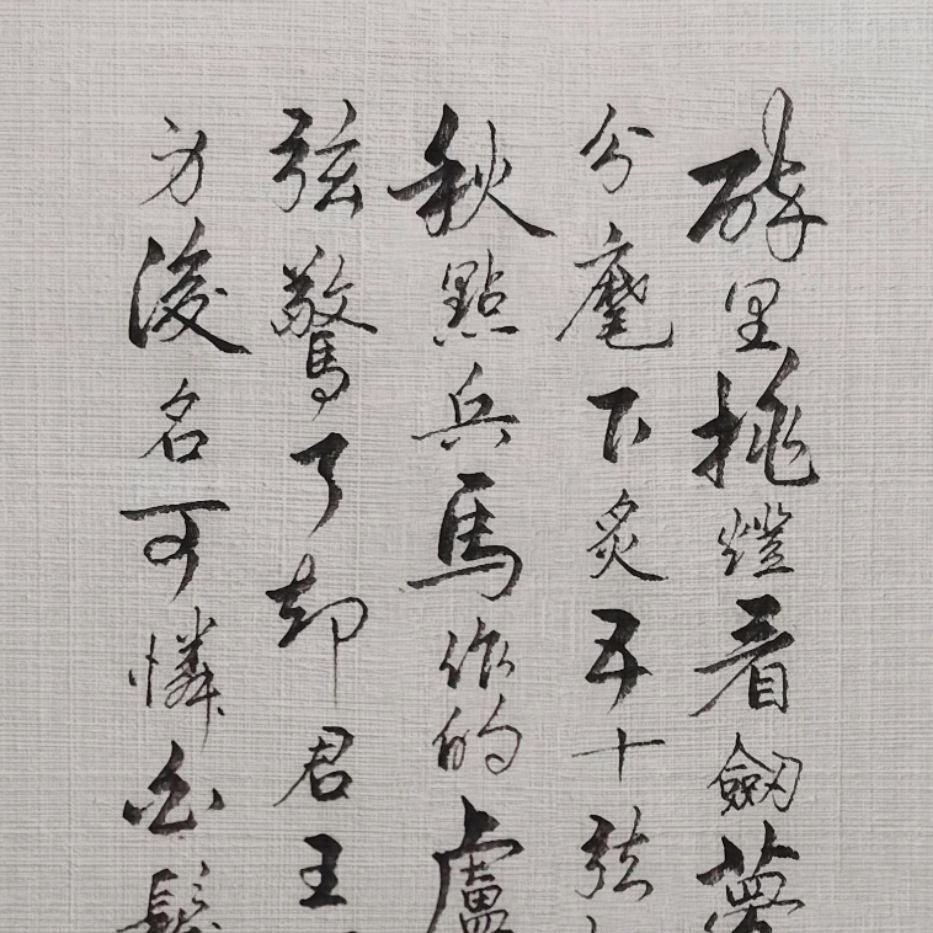 醉里挑燈看劍夢
分麾下炙五十弦
秋點兵馬作的盧
弦驚了却君王
身後名可憐白髮